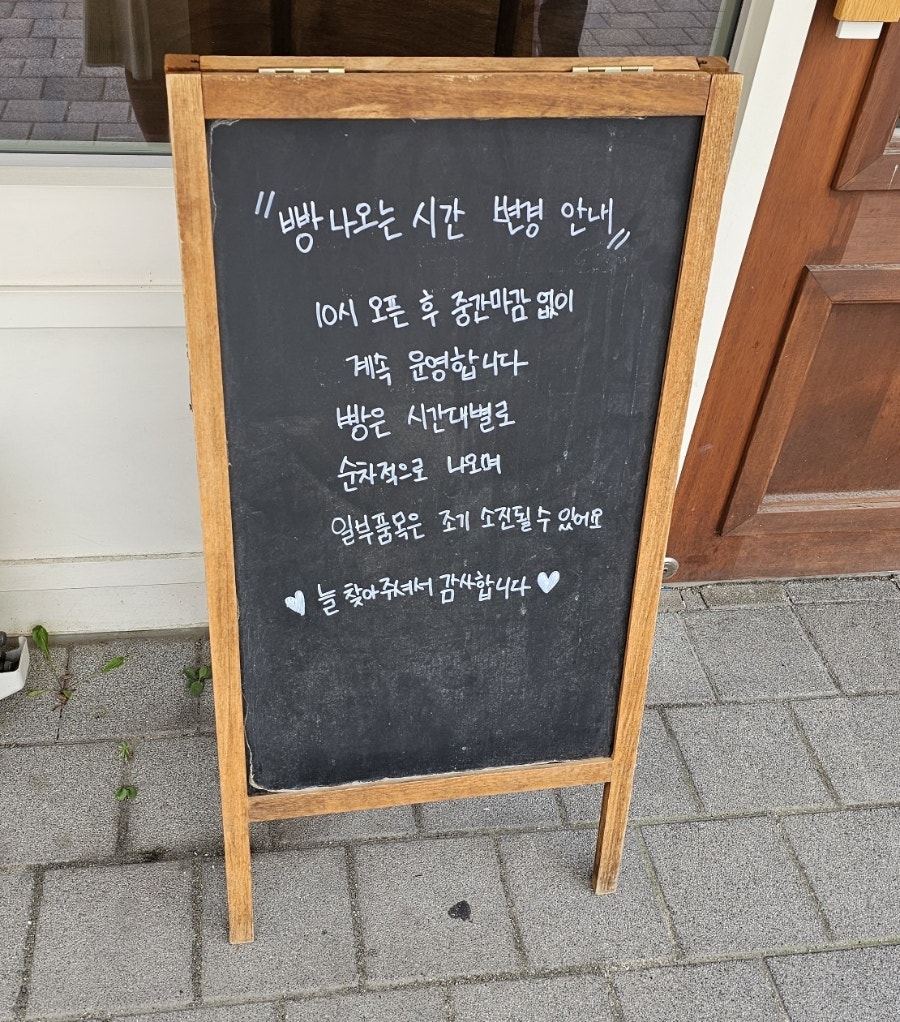 "빵 나오는 시간 변경 안내"
10시 오픈 후 중간마감 없이
계속 운영합니다
빵은 시간대별로
순차적으로 나오며
일부품목은 조기 소진될 수 있어요
♥ 늘 찾아주셔서 감사합니다 ♥